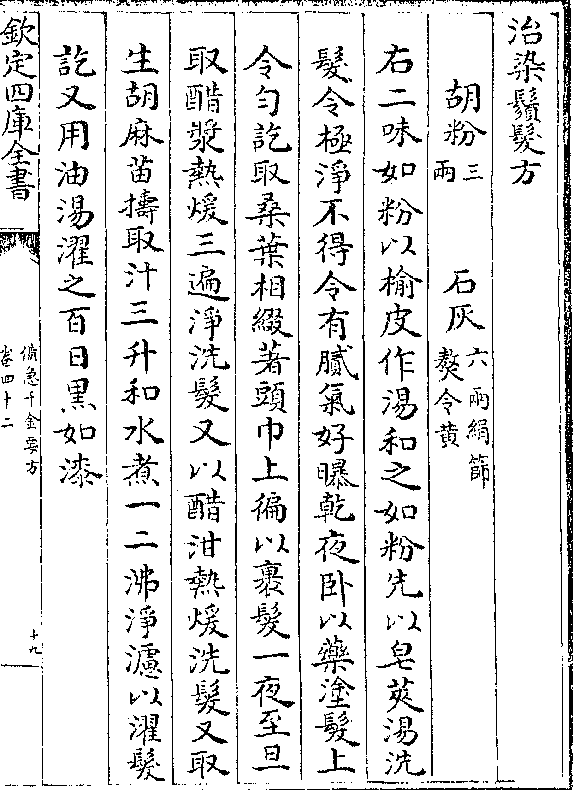 治染鬚髮方
胡粉三兩 石灰六兩絹篩熬令黄
右二味如粉以榆皮作湯和之如粉先以皂莢湯洗
髮令極淨不得令有膩氣好曝乾夜卧以藥塗髮上
令勻訖取桑葉相綴著頭巾上徧以裹髮一夜至旦
取醋漿熱煖三遍淨洗髮又以醋泔熱煖洗髮又取
生胡麻苗擣取汁三升和水煮一二沸淨濾以濯髮
訖又用油湯濯之百日黒如漆
欽定四庫全書
備急千金要方
卷四十二
十九